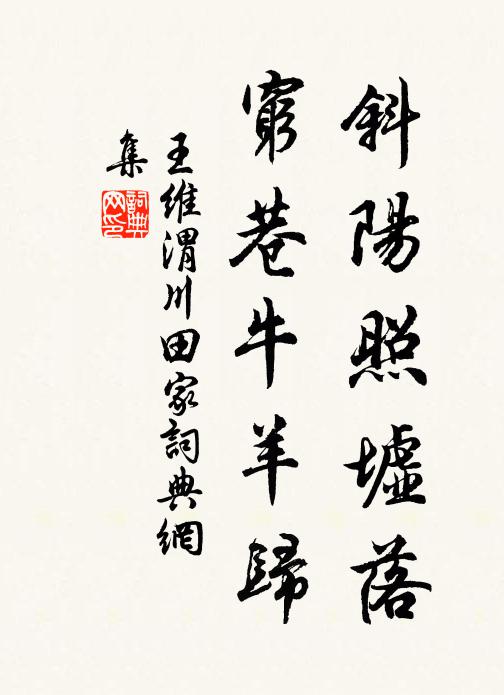 斜陽照墟落
窮巷牛羊歸
王維渭川田家詞典網
集
詞典網印